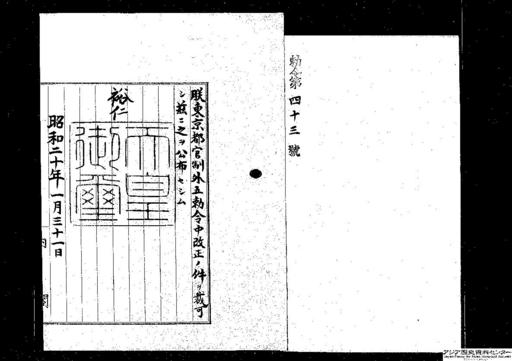 勅令第四十三號
朕東京都官制外五勅令中改正ノ件ヲ裁可
シ茲ニ之ヲ公布セシム
裕仁
天皇御璽
昭和二十年一月三十一日
内閣
アジア歴史資料センター